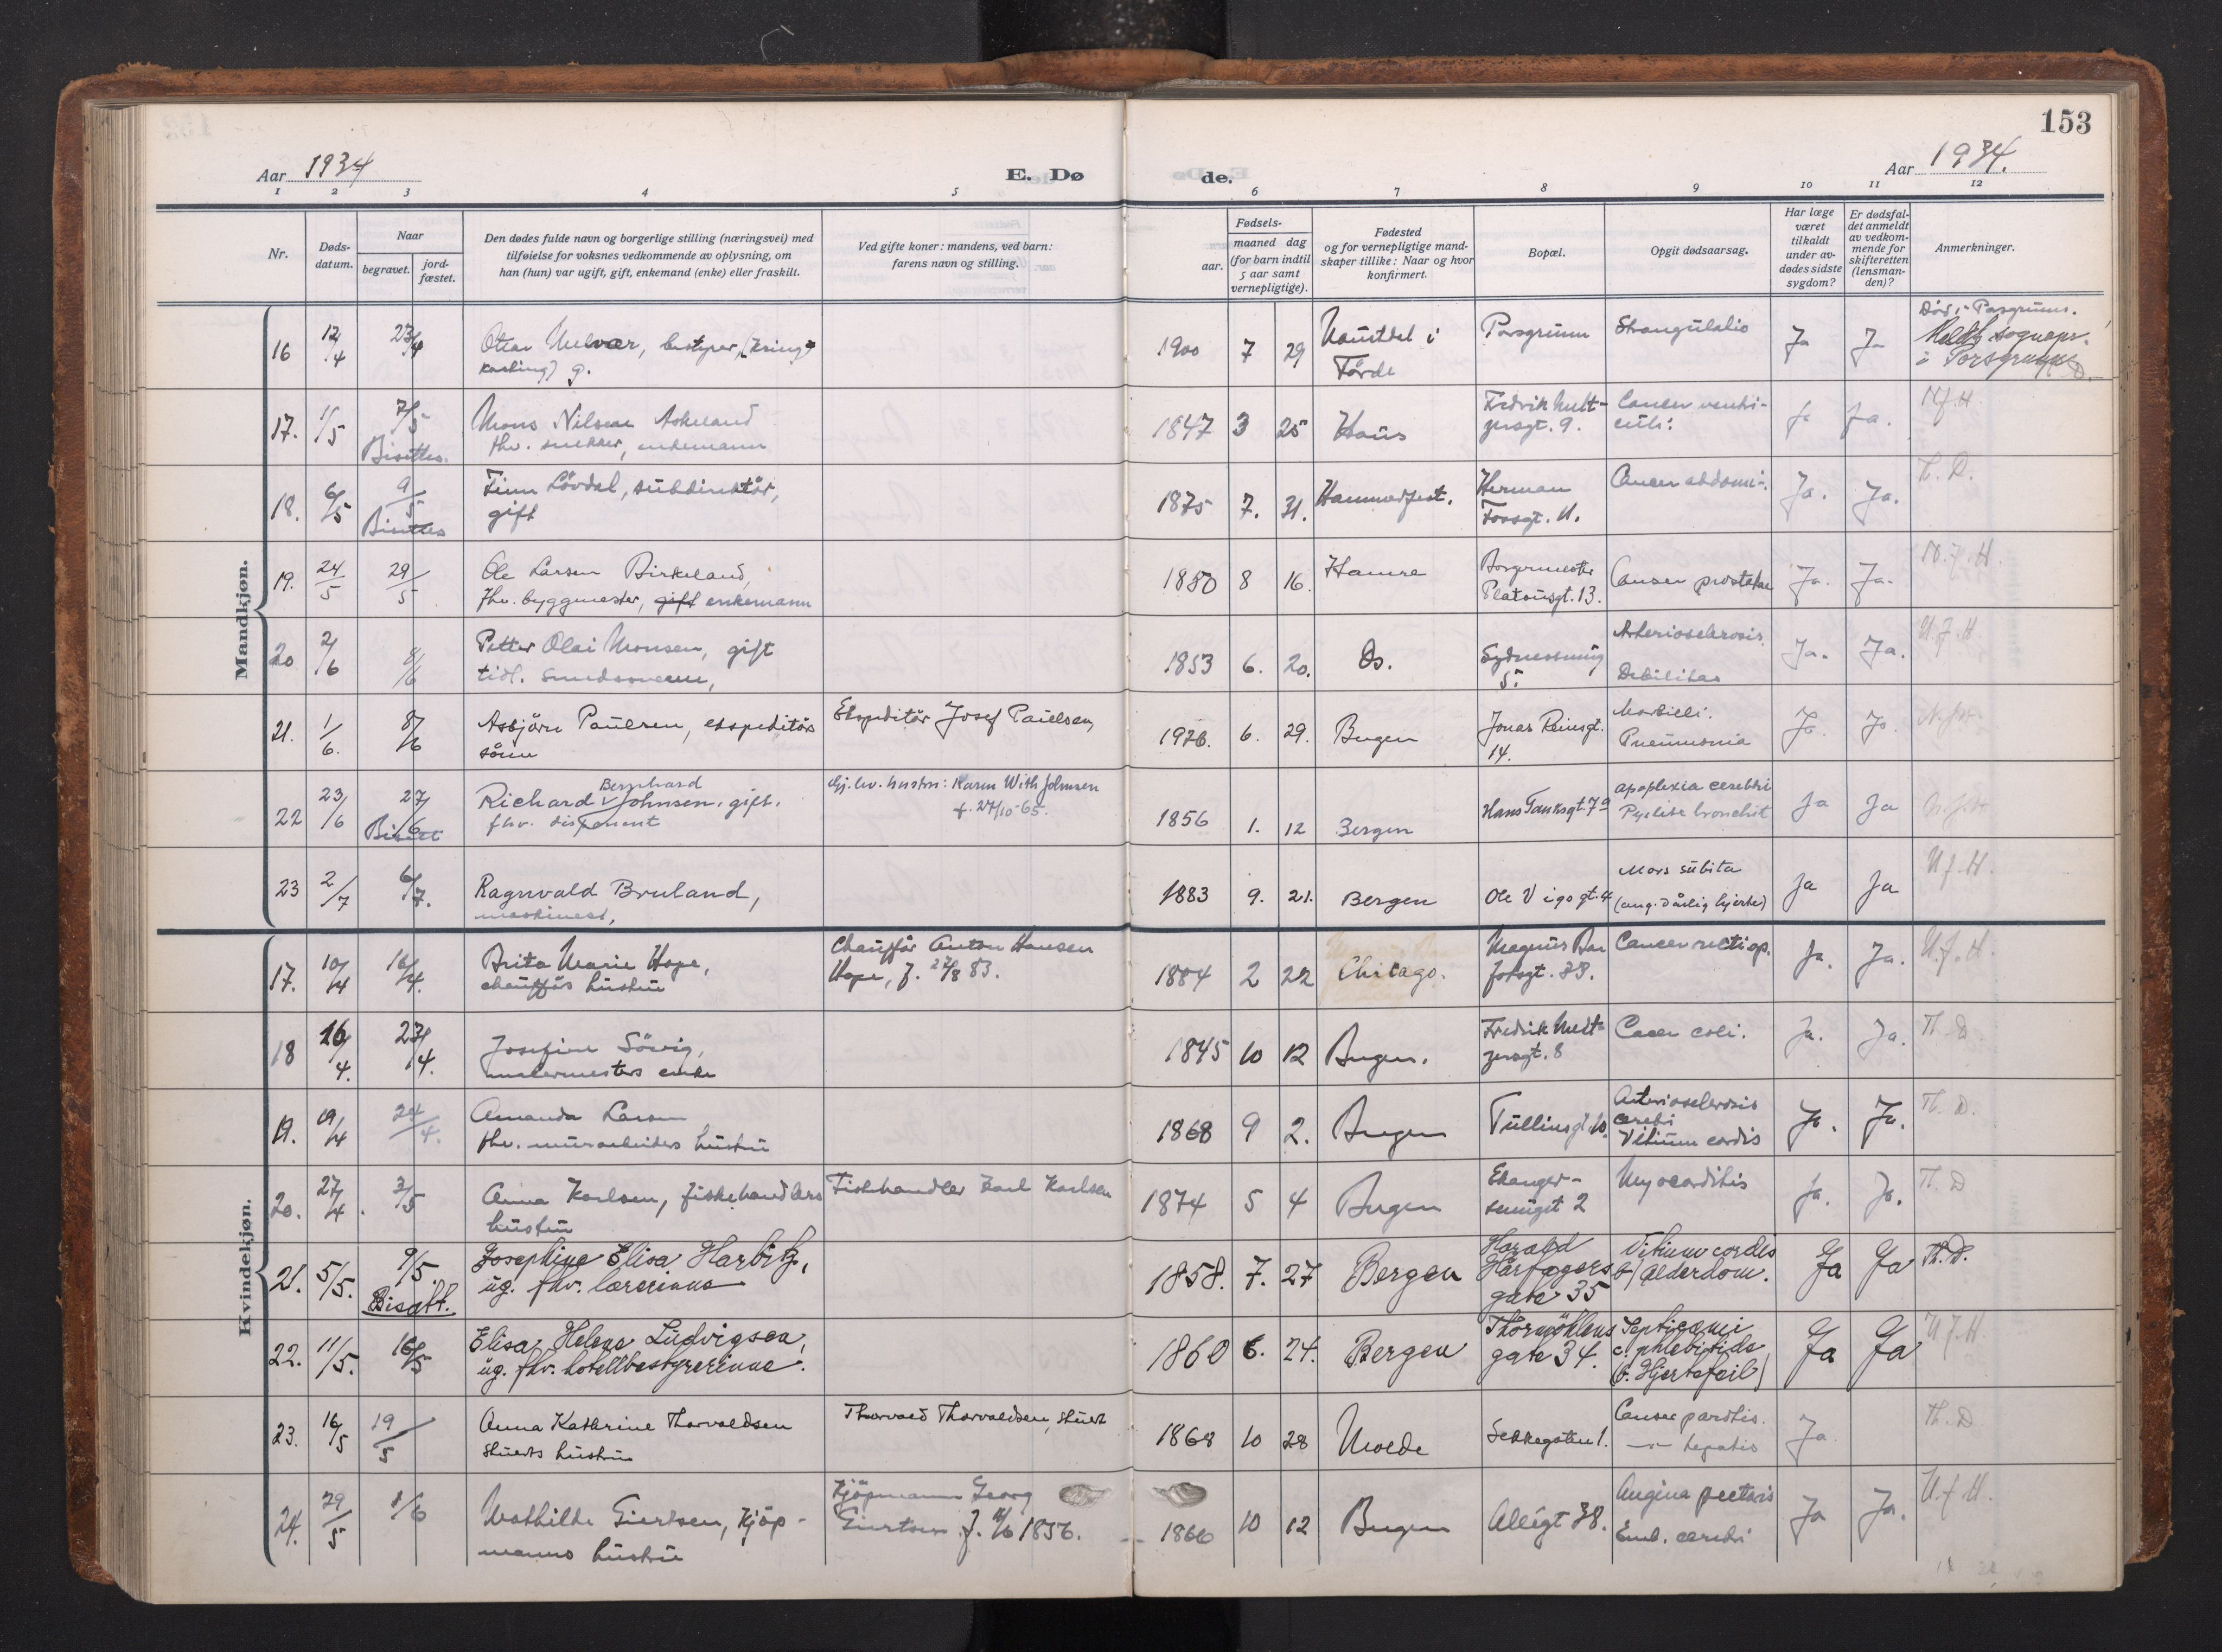 153
Aar 1934
Aar 1934.
E. Dø
de.
1 2 3 4 5 6 7 8 9 10 11 12
Nr.
Døds-
datum.
Naar
begravet.
jord-
fæstet.
Den dødes fulde navn og borgerlige stilling (næringsvei) med
tilføielse for voksnes vedkommende av oplysning, om
han (hun) var ugift, gift, enkemand (enke) eller fraskilt.
Ved gifte koner: mandens, ved barn:
farens navn og stilling.
Fødsels-
aar.
maaned dag
(for barn indtil
5 aar samt
vernepligtige).
Fødested
og for vernepligtige mand-
skaper tillike: Naar og hvor
konfirmert.
Bopæl.
Opgit dødsaarsag.
Har læge
været
tilkaldt
under av-
dødes sidste
sygdom?
Er dødsfal-
det anmeldt
av vedkom-
mende for
skifteretten
(lensman-
den)?
Anmerkninger.
Mandkjøn.
16 12/4 23/4 1900 7 29 Porsgrunn Strangulatio Ja Ja
Førde
i Porsgrunn
17. 1/5 7/5 Mons Nilsen Askeland 1847 3 25 Haus Fredrik Melt- Cancer ventri-
Bisettes. fhv. snekker, enkemann zersgt. 9. culi. Ja Ja.
18. 6/5 9/5 Finn Lövdal, subdirektör, 1875 7. 31. Hammerfest. Herman Cancer abdomi-. Ja. Ja. Th. D.
Bisettes gift Fossgt. 11.
19. 24/5 29/5 Ole Larsen Birkeland, 1850 8 16. Hamre Borgermester Cancer prostatae Ja. Ja.
fhv. byggmester, gift enkemann Platousgt. 13.
20 2/6 8/6 Petter Olai Monsen, gift 1853 6. 20. Os. Sydnessmug Arteriosclerosis. Ja. Ja.
tidl. 5. Debilitas
21. 1/6. 8/6 Asbjörn Paulsen, ekspeditörs Ekspeditör Josef Paulsen, 1926. 6. 29. Bergen Jonas Reinsgt. Morbilli. Ja. Ja.
sönn 14. Pneumonia
22 23/6 27/6 Richard Bernhard Johnsen. gift. Gj.lev. hustru: Karen With Johnsen 1856 1. 12 Bergen Hans Tanksgt. 7a apoplexia cerebri Ja Ja
Bisett fhv. disponent f. 27/10-65.
23 2/7 6/7. Ragnvald Bruland, 1883 9. 21. Bergen Ole Vigs gt. 4 Mors subita Ja Ja
maskinist, (ang. dårlig hjerte)
Kvindekjøn.
17. 10/4 16/4. Brita Marie Hope, Chaufför Anton Hansen 1884 2 22 Chicago. Magnus Bar Cancer recti op. Ja. Ja.
chaufförs hustru Hope, f. 27/8 83. fotsgt. 28.
18 16/4. 23/4. Josefine Sövig, 1845 10 12 Bergen. Fredrik Melt- coli. Ja. Ja. Th. D
malermesters enke zersgt. 8
19. 19/4 24/4. Amanda Larsen 1868 9 2. Bergen Tullinsgt. 10. Arteriosclerosis Ja. Ja. Th. D.
fhv. murarbeiders hustru cerebri
Vitium cordis
20. 27/4. 3/5 Anna Karlsen, fiskehandlers Fiskehandler Karl Karlsen 1874 5 4 Bergen Ekanger- Myocarditis Ja. Ja. Th. D
hustru smuget 2
21. 5/5. 9/5. Josephine Elisa Harbitz, 1858. 7. 27 Bergen Harald Vitium cordis Ja Ja Th. D.
Bisatt. ug. fhv. lærerinne Hårfagers Alderdom.
gate 35
22. 11/5. 16/5 Elisa Helene Ludvigsen, 1860 6. 24. Bergen Thormöhlens Septicæmi Ja Ja
ug. fhv. hotellbestyrerinne. gate 34. c. phlebitide
(o. Hjertefeil)
23. 16/5 19/5 Anna Kathrine Thorvaldsen Thorvald Thorvaldsen, stuert 1868 10 28 Molde 1. Cancer Ja Th. D
stuerts hustru hepatis
24. 29/5 1/6 Mathilde Giertsen, kjöp- Kjöpmann Georg 1860 10 12 Bergen Allégt 38. Angina pectoris Ja Ja.
manns hustru Giertsen f. 1856. Emb. cerebri